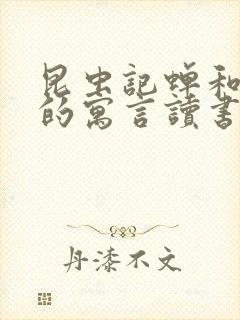 昆虫記蟬和
的寓言讀書
丹漆不文